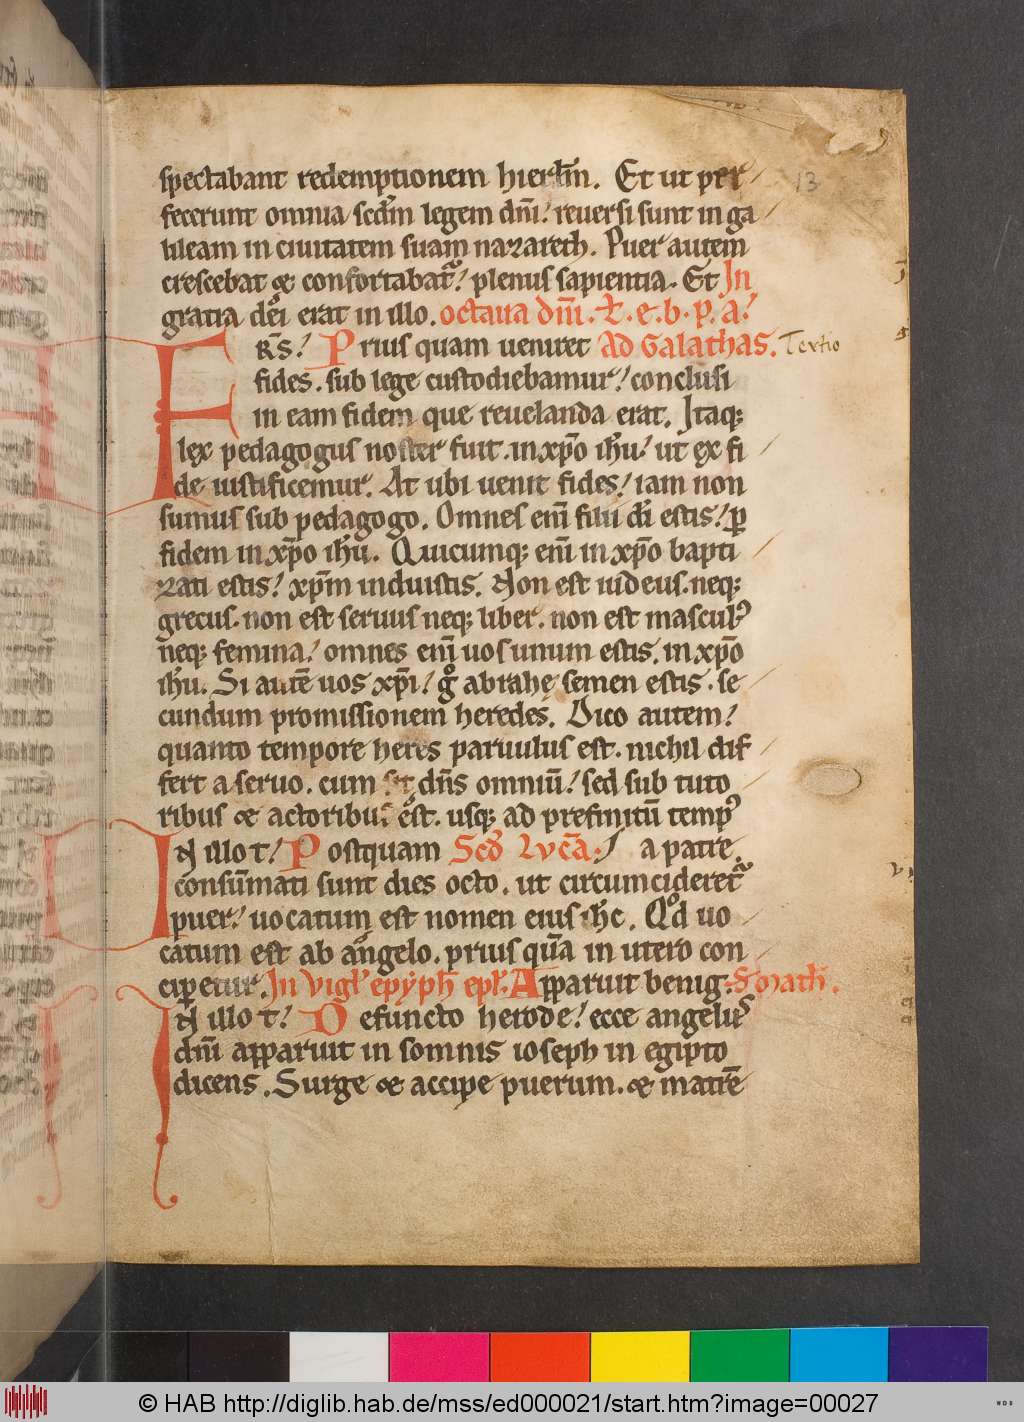 spectabant redemptionem hierl̄m. Et ut per
13
fecerunt omnia scd̄m legem dn̄i: reuersi sunt in ga
lileam in ciuitatem suam nazareth. Puer autem
crescebat & confortabat᷑: plenus sapientia. Et In
gratia dei erat in illo. octaua dn̄i. t̄. e. b. p. a:
FR̄S: Prius quam ueniret Ad Galathas. Tertio
fides. sub lege custodiebamur: conclusi
in eam fidem que reuelanda erat. Itaq;
lex pedagogus noster fuit. in xp̄o ih̄u: ut ex fi
de iustificemur. At ubi uenit fides: iam non
sumus sub pedagogo. Omnes eni̅ filii di̅ estis: ꝑ
fidem in xp̄o ih̄u. Quicumq; eni̅ in xp̄o bapti
zati estis: xp̄m induistis. Non est iudeus. neq;
grecus. non est seruus neq; liber. non est masculꝰ
neq; femina: omnes eni̅ uos unum estis. in xp̄o
ih̄u. Si autē uos xp̄i: gͦ abrahe semen estis. se
cundum promissionem heredes. Dico autem:
quanto tempore heres paruulus est. nichil dif
fert a seruo. cum sit dn̄s omniū: sed sub tuto
ribus & actoribus est. usq; ad prefinitū tempꝰ
IN illo t: Postquam Scd̄ Lvcā: a patre.
consūmati sunt dies octo. ut circumcideret᷑
puer: uocatum est nomen eius ih̄c. Qͦd uo
catum est ab angelo. prius quā in utero con
ciperetur. In vigl̄ epyph̄ epl̄. Apparuit benig: S math̄.
IN illo t: Defuncto herode: ecce angelus
dn̄i apparuit in somnis ioseph in egipto
dicens. Surge & accipe puerum. & matrē
© HAB http://diglib.hab.de/mss/ed000021/start.htm?image=00027